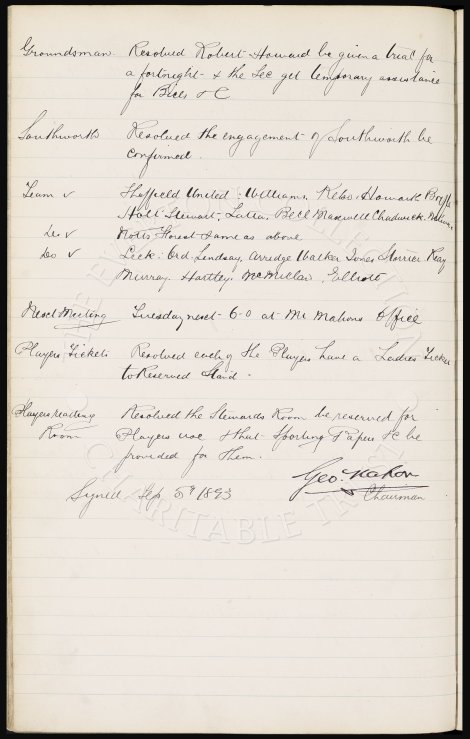 Groundsman Resolved Robert Howard be given a trial for
a fortnight & the Sec get temporary assistance
for Bills &C
Southworth Resolved the engagement of Southworth be
confirmed.
Team v Sheffield United: Williams, Kelso Howarth Boyle
Holt Stewart, Latta, Bell Maxwell Chadwick Milward
Do v Notts Forest same as above
Do v Leek: Ord. Lindsay, Arridge Walker Jones Storrier Reay
Murray. Hartley. McMillan. Elliott
Next Meeting Tuesday next 6-0 at Mr Mahons Office
Players Tickets Resolved each of the Players have a Ladies Ticket
to Reserved Stand.
Players reading Resolved the Stewards Room be reserved for
Room Players use & that Sporting Papers &c be
provided for them.
Geo. Mahon
Signed Sep 5th 1893 Chairman
CHARITABLE TRUST